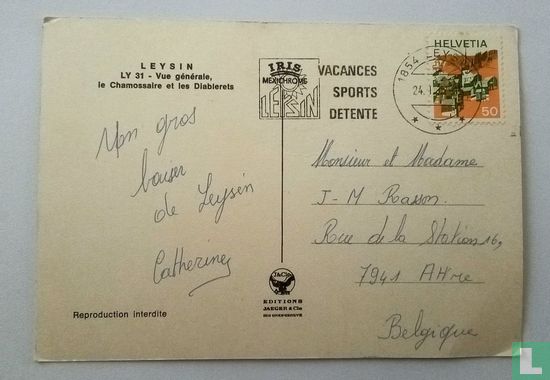 LEYSIN
LY 31 - Vue générale,
le Chamossaire et les Diablerets
IRIS
MEXICHROME
LEYSIN
VACANCES
SPORTS
DETENTE
1854
24.
HELVETIA
50
Mon gros
baiser
de Leysin
Catherine
Monsieur et Madame
J-M Rasson
Rue de la Station 16,
7941 Attre
Belgique
JACO
EDITIONS
JAEGER & Cie
Reproduction interdite
catawiki